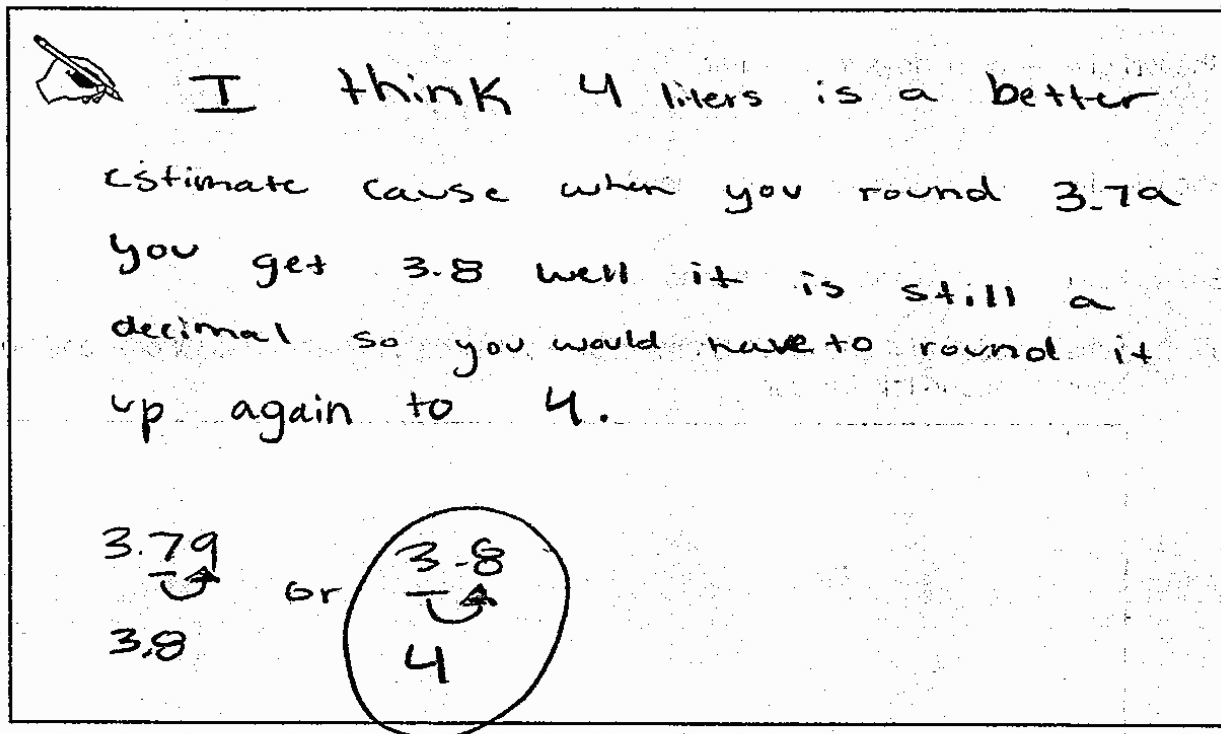 I think 4 liters is a better
estimate cause when you round 3.79
you get 3.8 well it is still a
decimal so you would have to round it
up again to 4.
3.79 or 3.8
3.8 4